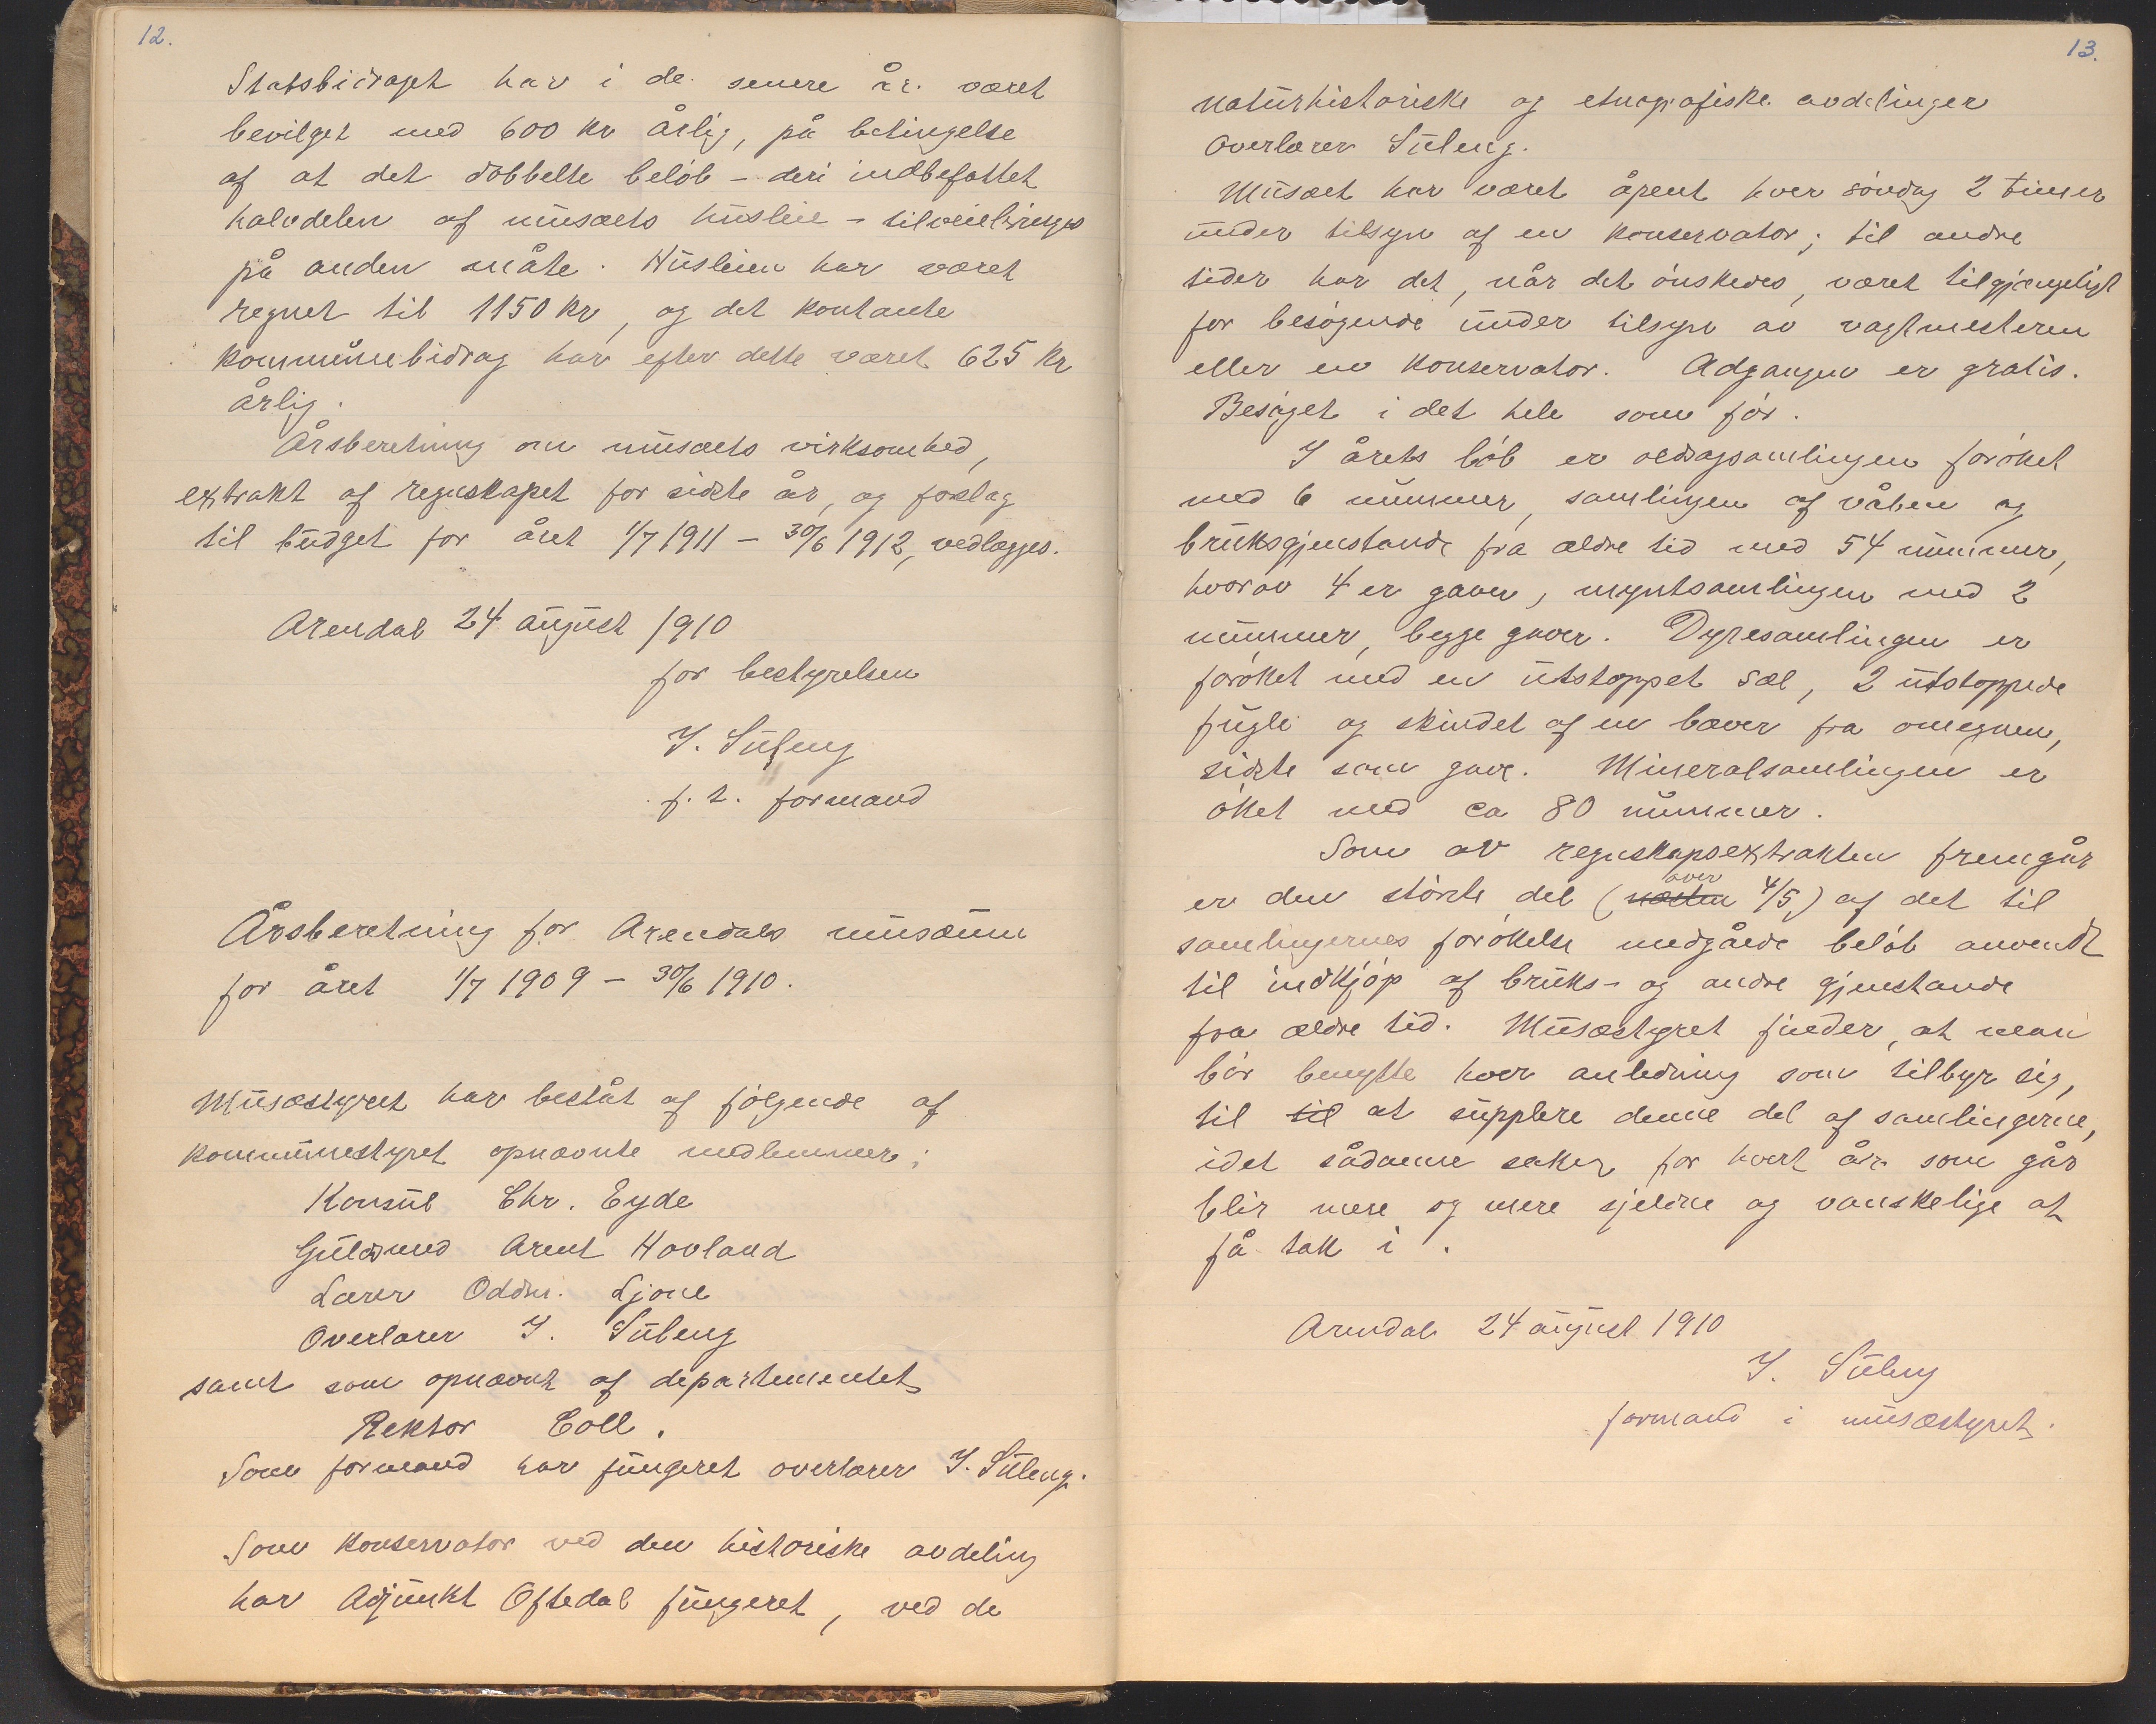 12.
Statsbidraget har i de senere år været
bevilget med 600 kr årlig, på betingelse
af at det dobbelte beløb – deri indbefattet
halvdelen af musæets husleie – tilveiebringes
på anden måte. Husleien har været
regnet til 1150 kr, og det kontante
kommunebidrag har efter dette været 625 kr
årlig.
Årsberetning om musæets virksomhed,
extrakt af regnskapet for sidste år, og forslag
til budget for året 1/7 1911 – 30/6 1912, vedlægges.
Arendal 24 august 1910
for bestyrelsen
I. Süleng
f. t. formand
Årsberetning for Arendals musæum
for året 1/7 1909 – 30/6 1910.
Musæstyret har bestått af følgende af
kommunestyret opnævnte medlemmer:
Konsul Chr. Eyde
Guldsmed Arent Hovland
Lærer Oddm. Ljone
Overlærer I. Süleng
samt som opnævnt af departementet
Rektor Coll.
Som formand har fungeret overlærer I. Süleng.
Som konservator ved den historiske avdeling
har Adjunkt Oftedal fungeret, ved de
13.
naturhistoriske og etnografiske avdelinger
Overlærer Süleng.
Musæet har været åpent hver søndag 2 timer
under tilsyn af en konservator; til andre
tider har det, når det ønskedes, været tilgjængeligt
for besøgende under tilsyn av vagtmesteren
eller en konservator. Adgangen er gratis.
Besøget i det hele som før.
I årets løb er oldsagsamlingen forøket
med 6 nummer, samlingen af våben og
bruksgjenstande fra ældre tid med 54 nummer,
hvorav 4 er gaver, myntsamlingen med 2
nummer, begge gaver. Dyresamlingen er
forøket med en utstoppet sæl, 2 utstoppede
fugle og skindet af en bæver fra omegnen,
sidste som gave. Mineralsamlingen er
øket med ca 80 nummer.
Som av regnskapsextrakten fremgår
over
er den største del (næsten 4/5) af det til
samlingernes forøkelse medgåede beløb anvendt
til indkjøp af bruks- og andre gjenstande
fra ældre tid. Musæstyret finder, at man
bør benytte hver anledning som tilbyr sig,
til til at supplere denne del af samlingerne,
idet sådanne saker for hvert år som går
blir mere og mere sjeldne og vanskelige at
få tak i.
Arendal 24 august 1910
I. Süleng
formand i musæstyret.